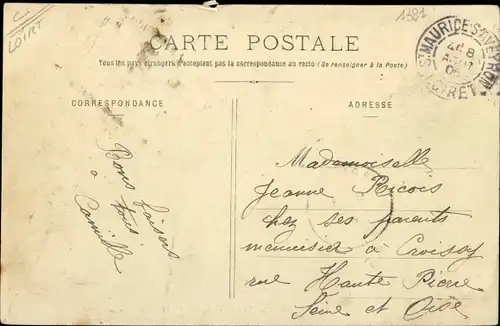 C
LOIRT
1381
CARTE POSTALE
Tous les pays étrangers n'acceptent pas la correspondance au recto (Se renseigner à la Poste)
CORRESPONDANCE
ADRESSE
St MAURICE-S-AVEYRON
LOIRET
Bons baisers
à tous
Camille
Mademoiselle
Jeanne Ricois
chez ses parents
menuisier à Croissy
rue Haute Pierre
Seine et Oise